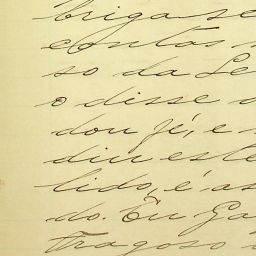 briga se
contas
so da Le
o disse
dou fé, e
diu este
lido, é as
do. Eu Ga
tragoso